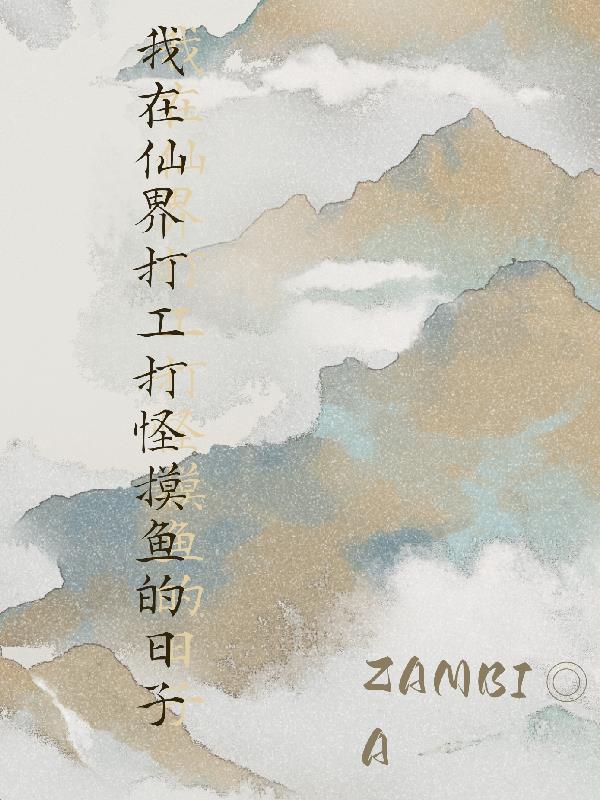 我在仙界打工打怪摸鱼的日子
ZAMBI
A